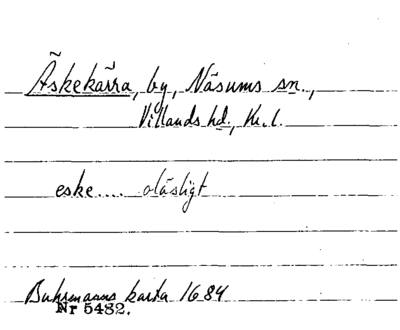 Äskekärra, by, Näsums sn.,
Villands hd., Kr. l.
eske.... oläsligt
Buhrmanns karta 1684
Nr 5482.